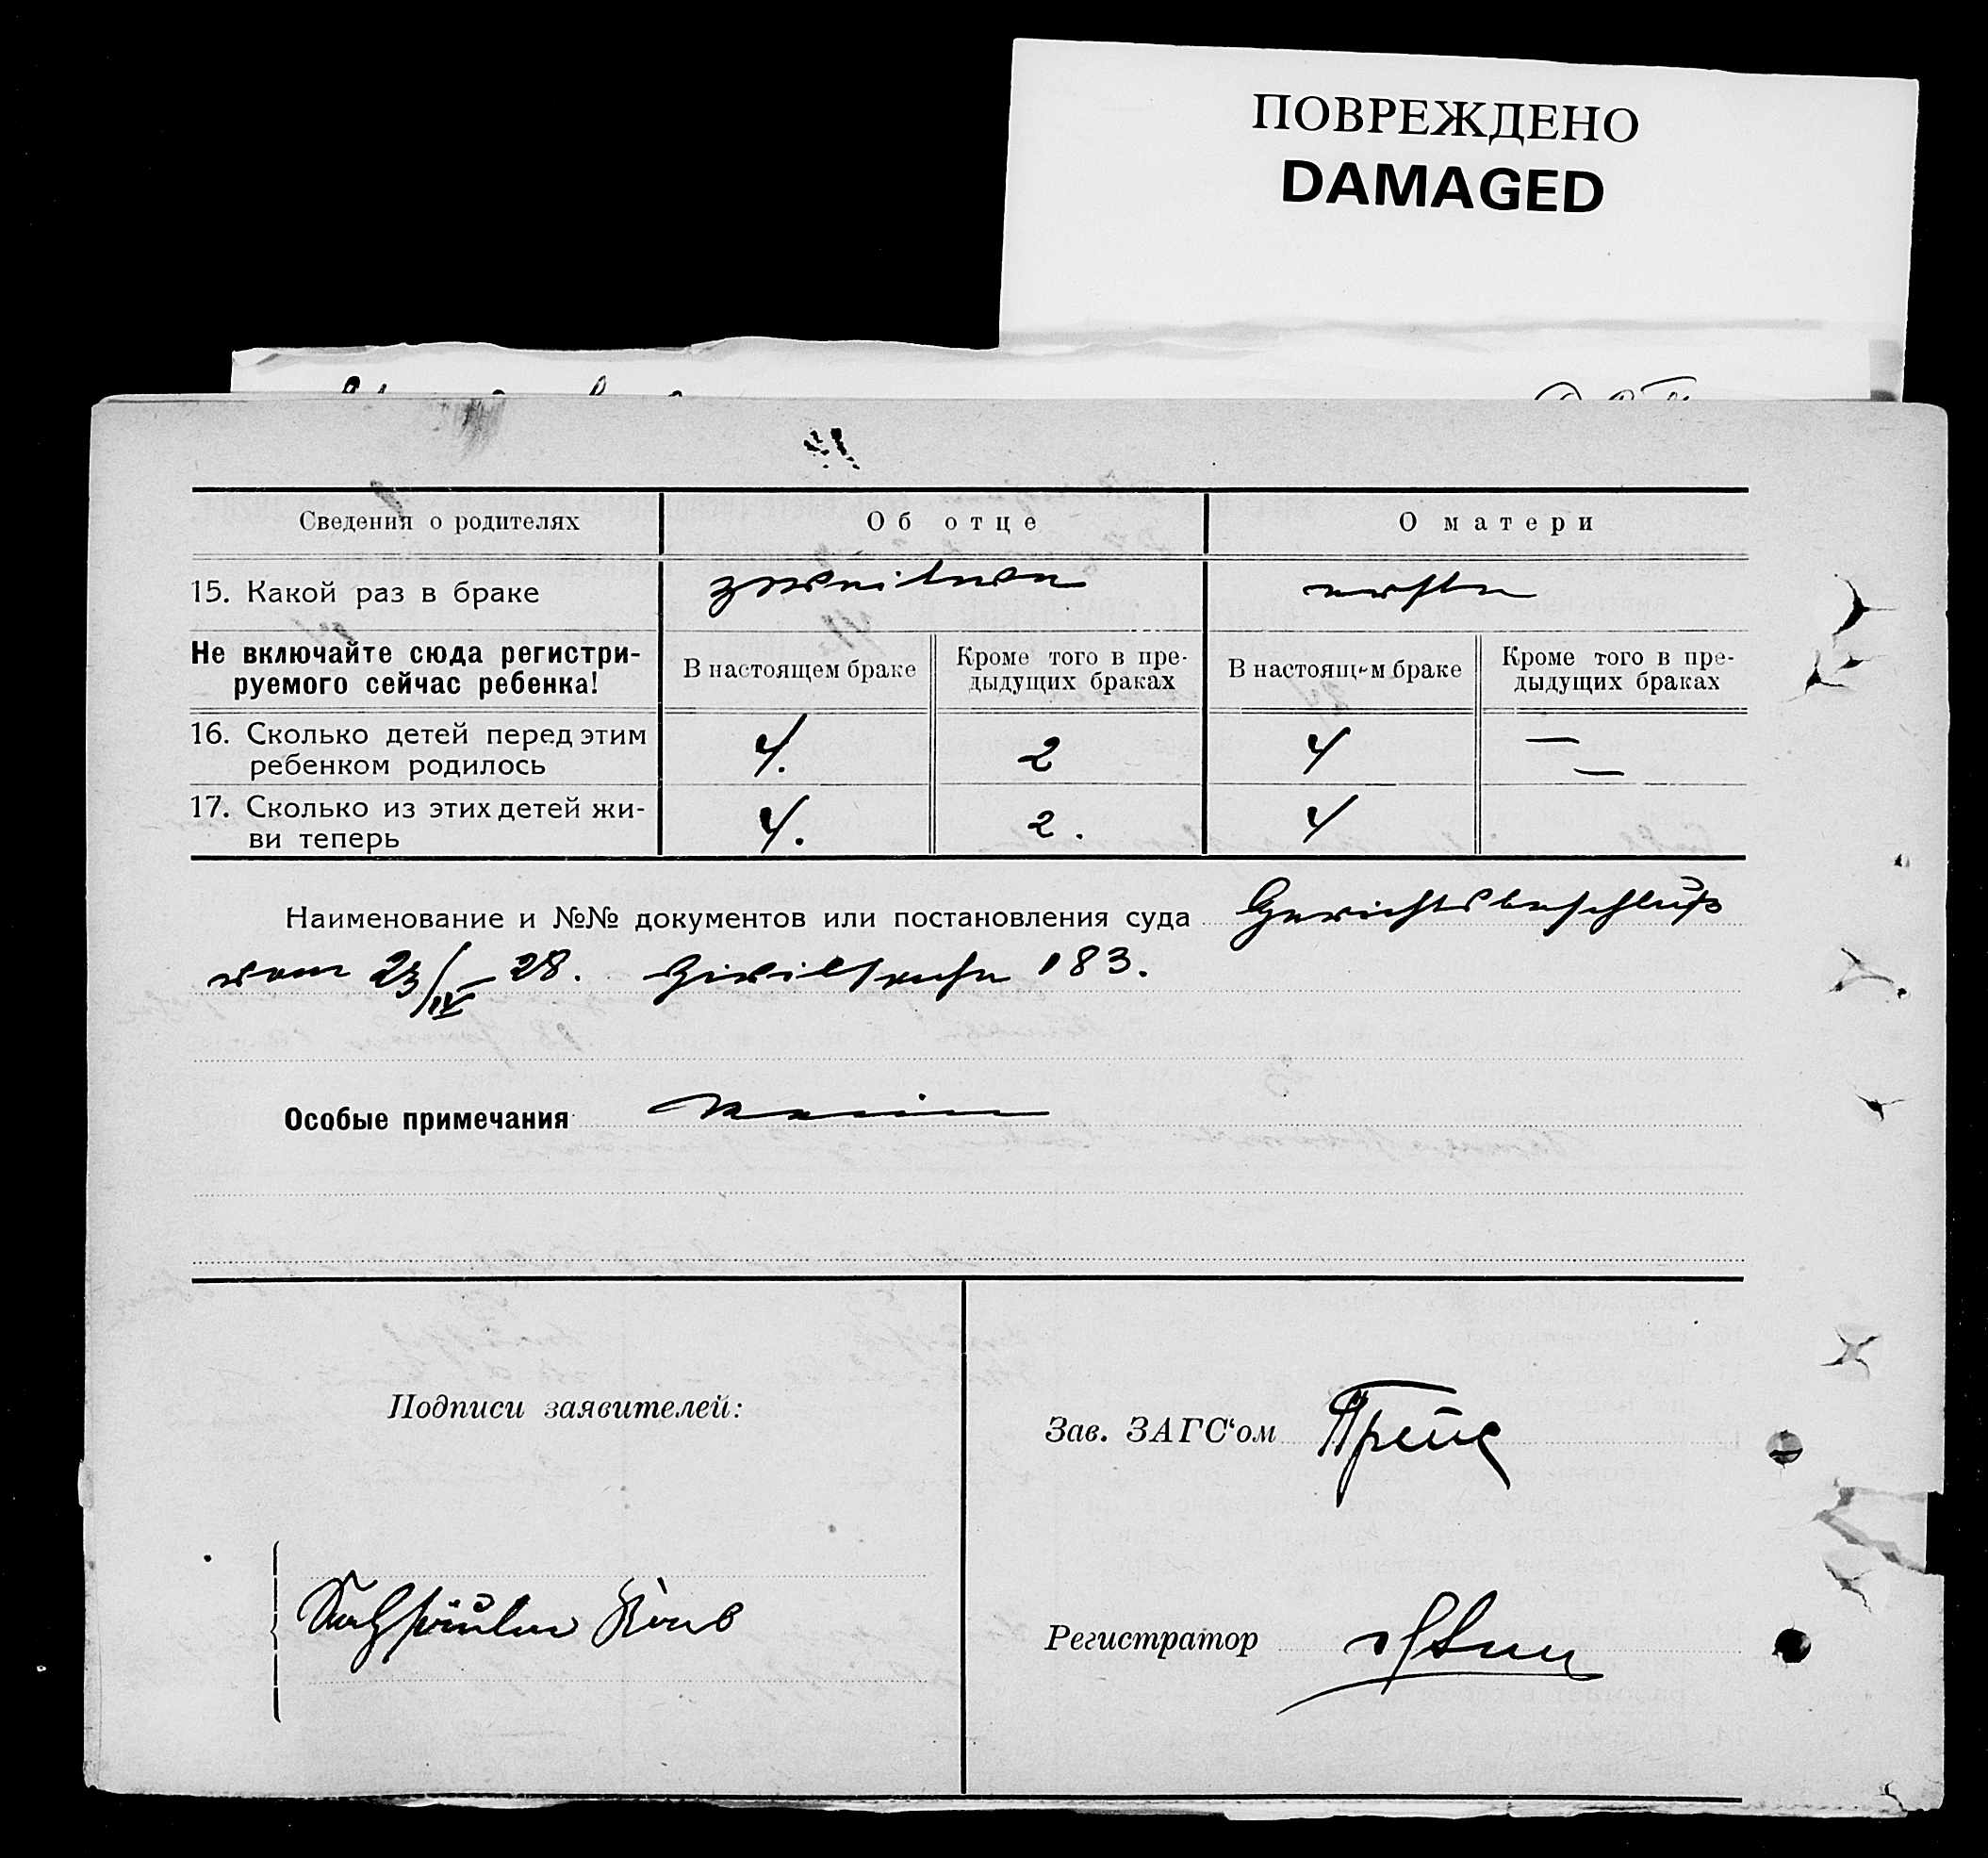 ПОВРЕЖДЕНО
DAMAGED
Сведения о родителях
Об отце
О матери
15. Какой раз в браке
zweiten
ersten
Не включайте сюда регистри-
руемого сейчас ребенка!
В настоящем браке
Кроме того в пре-
дыдущих браках
В настоящем браке
Кроме того в пре-
дыдущих браках
16. Сколько детей перед этим
ребенком родилось
4.
2
4
—
—
17. Сколько из этих детей жи-
ви теперь
4.
2.
4
Наименование и №№ документов или постановления суда Gerichtsbeschluß
vom 23/IV 28. Zivilsache 183.
Особые примечания
Подписи заявителей:
Зав. ЗАГС‘ом Прейс
Регистратор